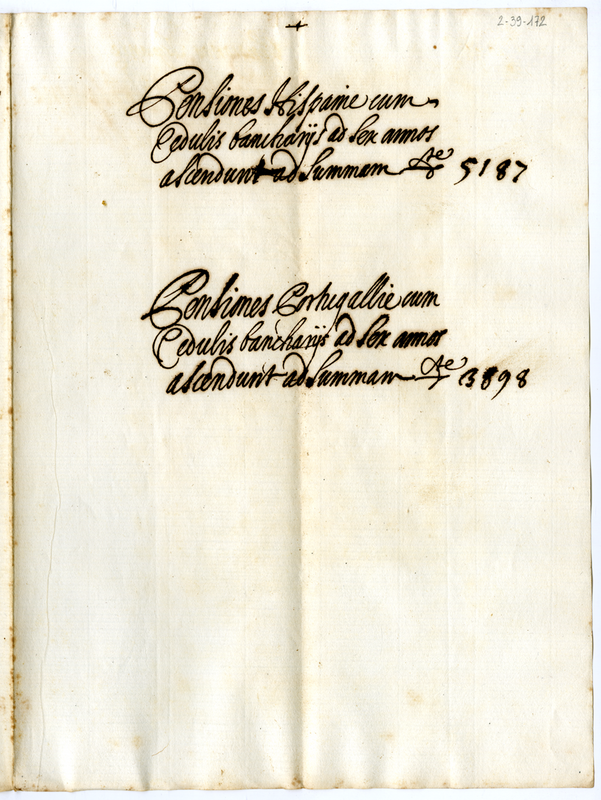 2-39-172
Pensiones Hispanie cum
Cedulis bancharijs ad sex annos
ascendunt ad summam 5187
Pensiones Portugallie cum
Cedulis bancharijs ad sex annos
ascendunt ad summam 3898